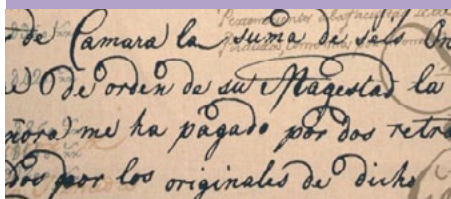 de Camara la suma de seis On
de orden de su Magestad la
ñora) me ha pagado por dos retra
dos por los originales de dicho